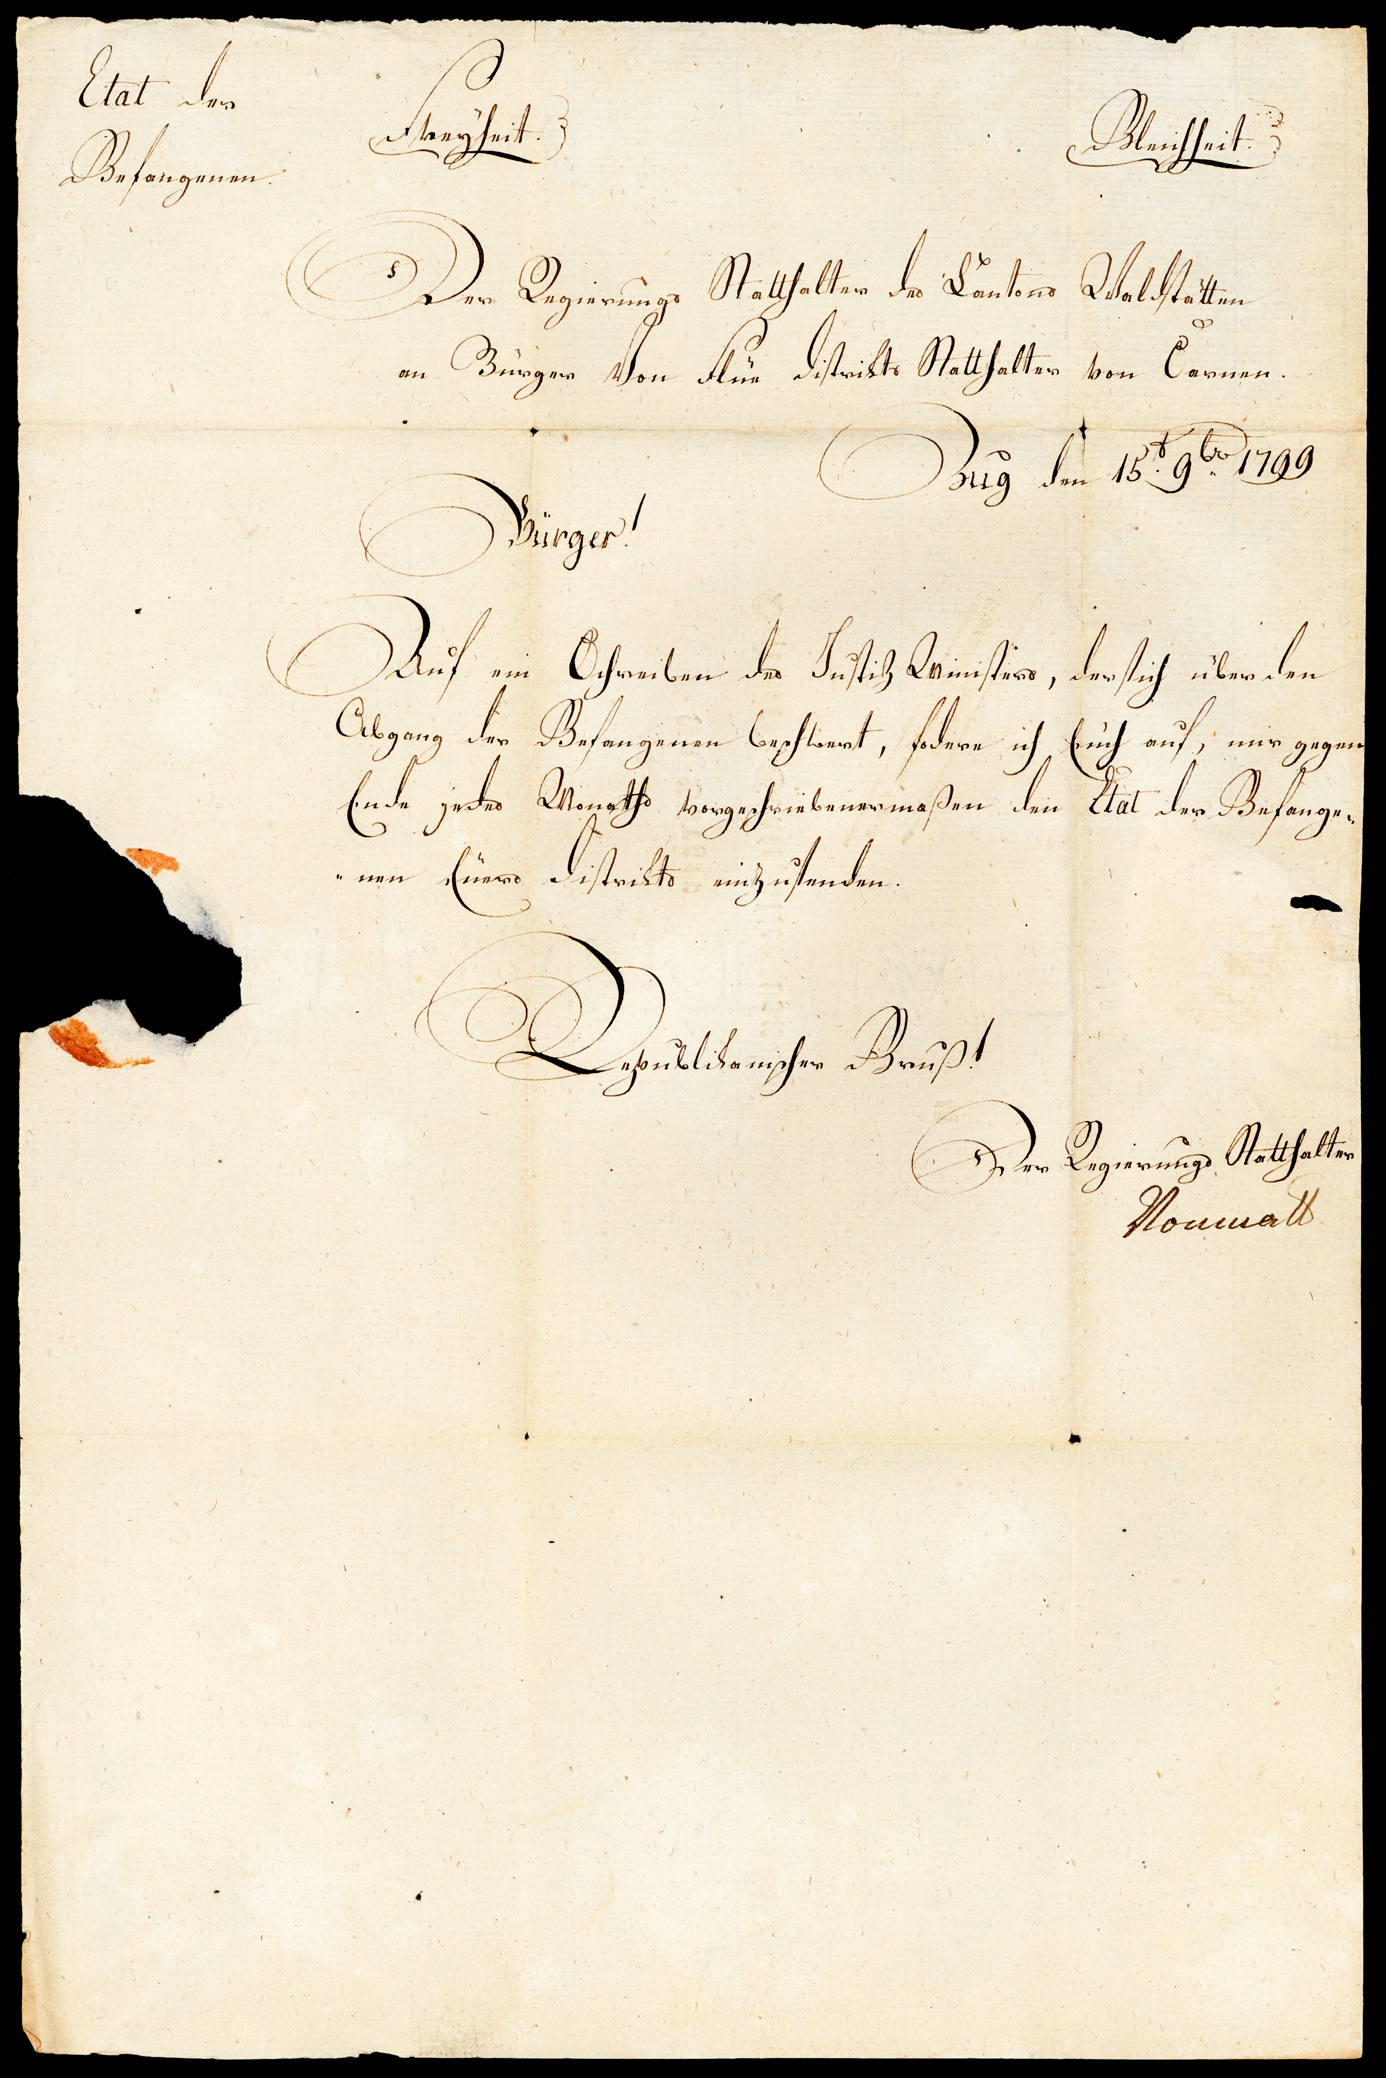 Etat der
Gefangenen.
Freyheit.
Gleichheit.
Der Regierungs Statthalter des Cantons Waldstätten
an Bürger Von Flüe Distrikts Statthalter von Sarnen.
Zug den 15t. 9br. 1799
Bürger!
Auf ein Schreiben des Justiz Ministers, der sich über den
Abgang der Gefangenen beschwert, fodere ich Euch auf, mir gegen
Ende jedes Monaths vorgeschriebenermaßen den Etat der Gefange„
„nen Euers Distrikts einzusenden.
Republikanischer Gruß!
Der Regierungs Statthalter
Vonmatt